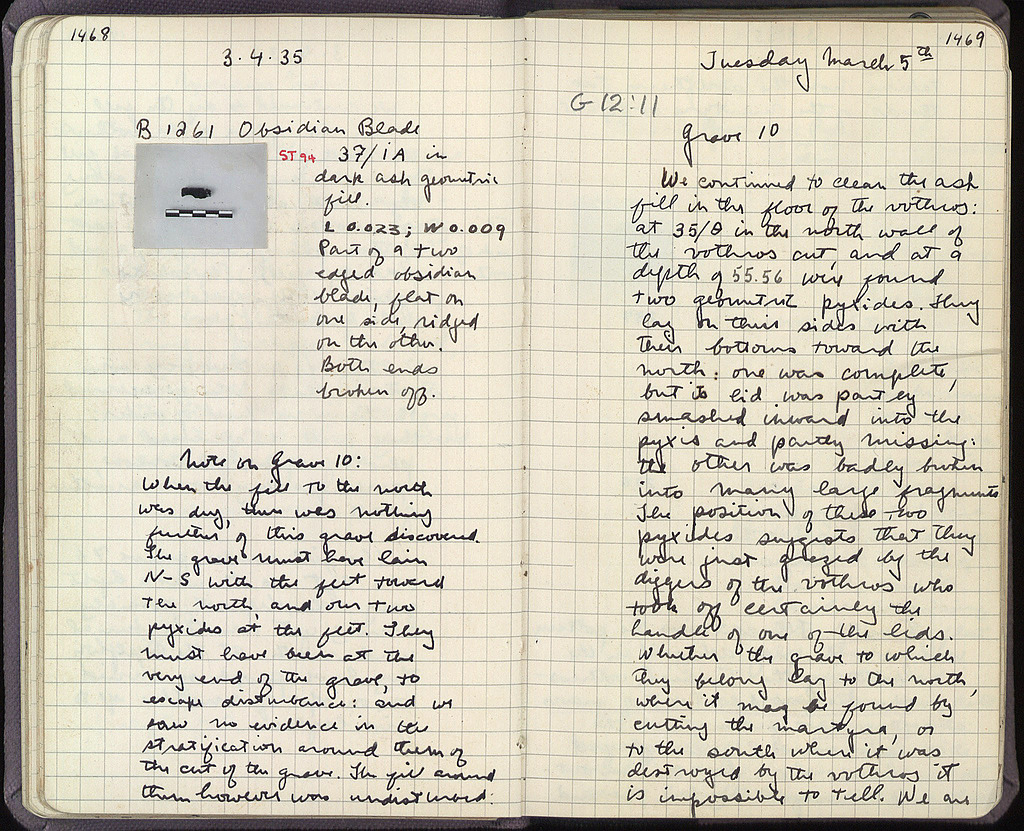 1468
3.4.35
B 1261 Obsidian Blade
ST 94
37/IA in
dark ash geometric
fill.
L 0.023; W 0.009
Part of a two
edged obsidian
blade, flat on
one side, ridged
on the other.
Both ends
broken off.
Note on Grave 10:
When the fill to the north
was dug, there was nothing
further of this grave discovered.
The grave must have lain
N-S with the feet toward
the north, and our two
pyxides at the feet. They
must have been at the
very end of the grave, to
escape disturbance: and we
saw no evidence in the
stratification around them of
the cut of the grave. The fill around
them however was undisturbed:
1469
Tuesday March 5th
G 12:11
Grave 10
We continued to clean the ash
fill in the floor of the vothros:
at 35/Θ in the north wall of
the vothros cut, and at a
depth of 55.56 were found
two geometric pyxides. They
lay on their sides with
their bottoms toward the
north: one was complete,
but its lid was partly
smashed inward into the
pyxis and partly missing:
the other was badly broken
into many large fragments
The position of these two
pyxides suggests that they
were just grazed by the
diggers of the vothros who
took off certainly the
handle of one of the lids.
Whether the grave to which
they belong lay to the north,
where it may be found by
cutting the martyra, or
to the south where it was
destroyed by the vothros it
is impossible to tell. We are